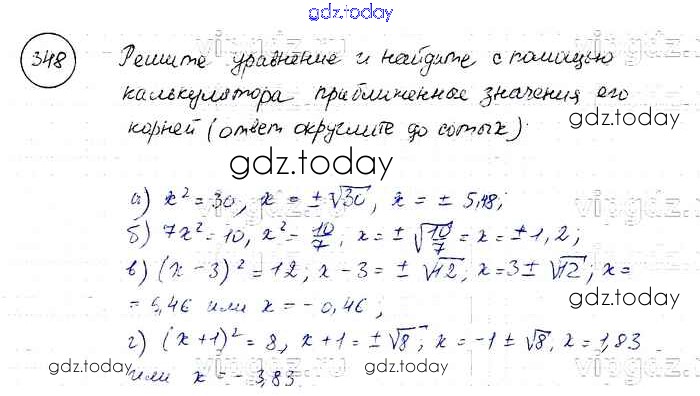 gdz.today
348 Решите уравнение и найдите с помощью
калькулятора приближенные значения его
корней (ответ округлите до сотых).
gdz.today
gdz.today
а) x² = 30, x = ±√30, x = ± 5,48;
б) 7x² = 10, x² = 10/7, x = ± √10/7 = x = ±1,2;
в) (x - 3)² = 12; x - 3 = ± √12, x = 3 ± √12; x =
= 6,46 или x = - 0,46;
gdz.today
г) (x + 1)² = 8, x + 1 = ±√8, x = -1 ± √8, x = 1,83
или x = - 3,83
gdz.today
gdz.today
gdz.today